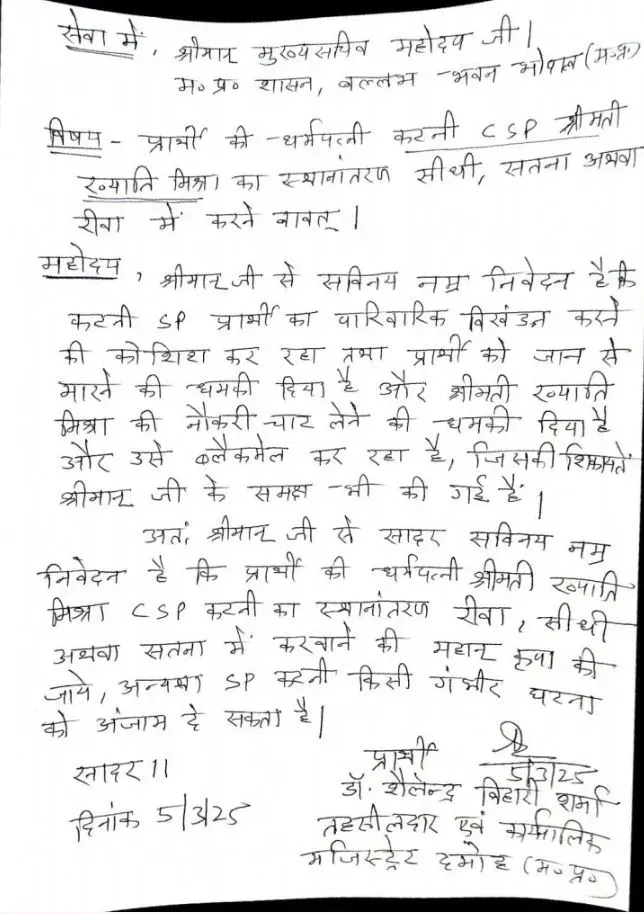 सेवा में, श्रीमान् मुख्यसचिव महोदय जी।
म॰ प्र॰ शासन, वल्लभ भवन भोपाल (म॰प्र॰)
विषय - प्रार्थी की धर्मपत्नी कटनी CSP श्रीमती
ख्याति मिश्रा का स्थानांतरण सीधी, सतना अथवा
रीवा में करने बावत्।
महोदय, श्रीमान् जी से सविनय नम्र निवेदन है कि
कटनी SP प्रार्थी का पारिवारिक विखंडन करने
की कोशिश कर रहा तथा प्रार्थी को जान से
मारने की धमकी दिया है और श्रीमती ख्याति
मिश्रा की नौकरी चाट लेने की धमकी दिया है
और उसे ब्लैकमेल कर रहा है, जिसकी शिकायतें
श्रीमान् जी के समक्ष भी की गई हैं।
अतः श्रीमान् जी से सादर सविनय नम्र
निवेदन है कि प्रार्थी की धर्मपत्नी श्रीमती ख्याति
मिश्रा CSP कटनी का स्थानांतरण रीवा, सीधी
अथवा सतना में करवाने की महान् कृपा की
जाये, अन्यथा SP कटनी किसी गंभीर घटना
को अंजाम दे सकता है।
सादर ॥
दिनांक 5/3/25
प्रार्थी
5/3/25
डॉ. शैलेन्द्र बिहारी शर्मा
तहसीलदार एवं कार्यपालिक
मजिस्ट्रेट दमोह (म॰प्र॰)